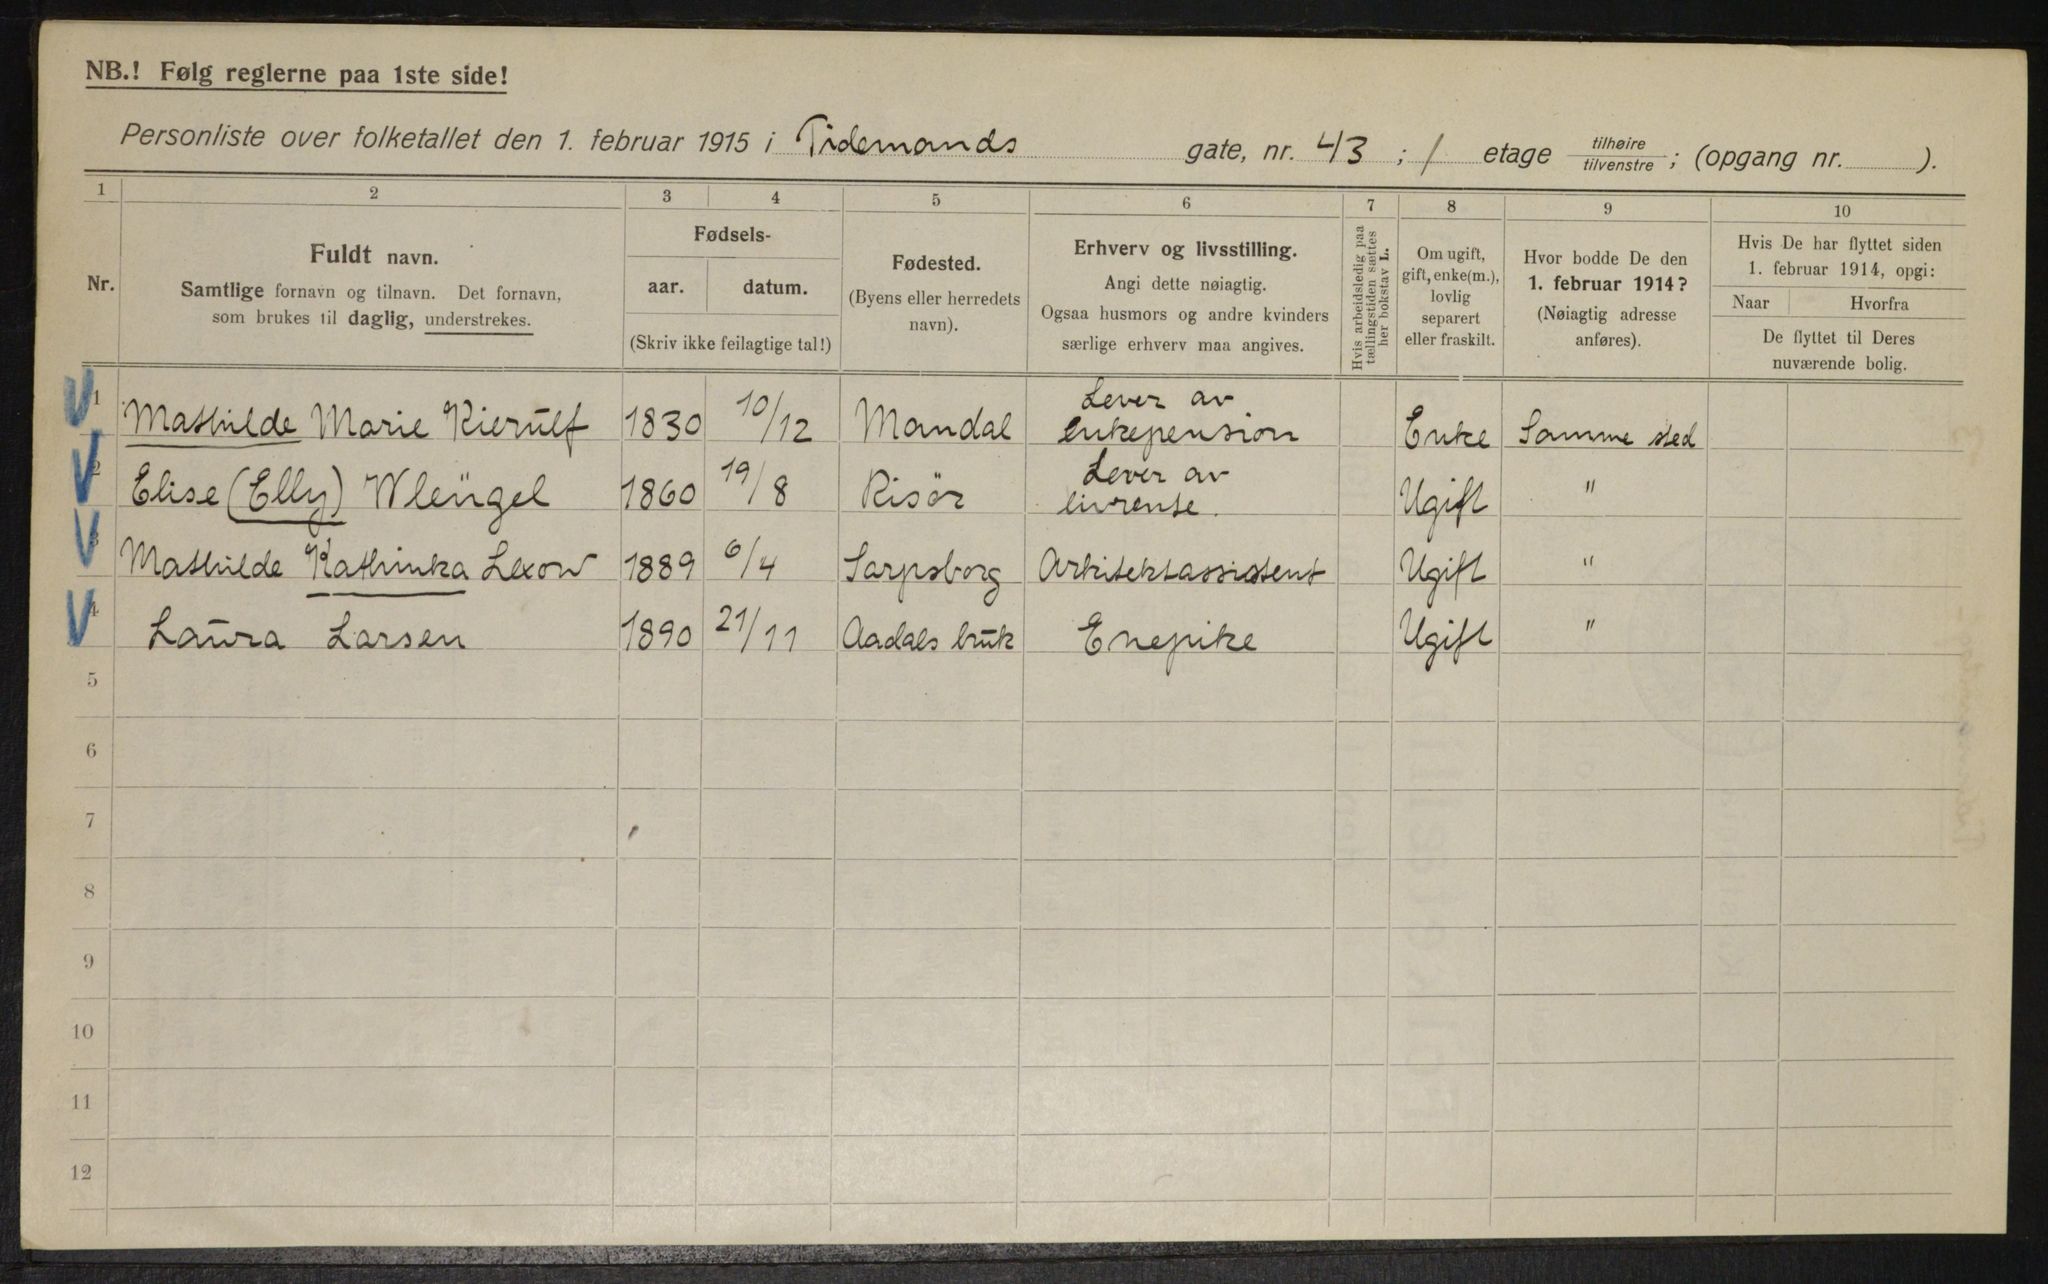 NB.! Følg reglerne paa 1ste side!
Personliste over folketallet den 1. februar 1915 i Tidemands gate, nr. 43 ; 1 etage tilhøire/tilvenstre ; (opgang nr. ).
1 2 3 4 5 6 7 8 9 10
Nr.
Fuldt navn.
Samtlige fornavn og tilnavn. Det fornavn,
som brukes til daglig, understrekes.
Fødsels-
aar. datum.
(Skriv ikke feilagtige tal!)
Fødested.
(Byens eller herredets
navn).
Erhverv og livsstilling.
Angi dette nøiagtig.
Ogsaa husmors og andre kvinders
særlige erhverv maa angives.
Hvis arbeidsledig paa
tællingstiden sættes
her bokstav L.
Om ugift,
gift, enke(m.),
lovlig
separert
eller fraskilt.
Hvor bodde De den
1. februar 1914?
(Nøiagtig adresse
anføres).
Hvis De har flyttet siden
1. februar 1914, opgi:
Naar Hvorfra
De flyttet til Deres
nuværende bolig.
1 Mathilde Marie Kierulf 1830 10/12 Mandal Lever av
enkepension Enke Samme sted
2 Elise (Elly) Wleügel 1860 19/8 Risör Lever av
livrente. Ugift "
3 Mathilde Kathinka Lexow 1889 6/4 Sarpsborg Arkitektassistent Ugift "
4 Laura Larsen 1890 21/11 Aadals bruk Enepike Ugift "
5
6
7
8
9
10
11
12